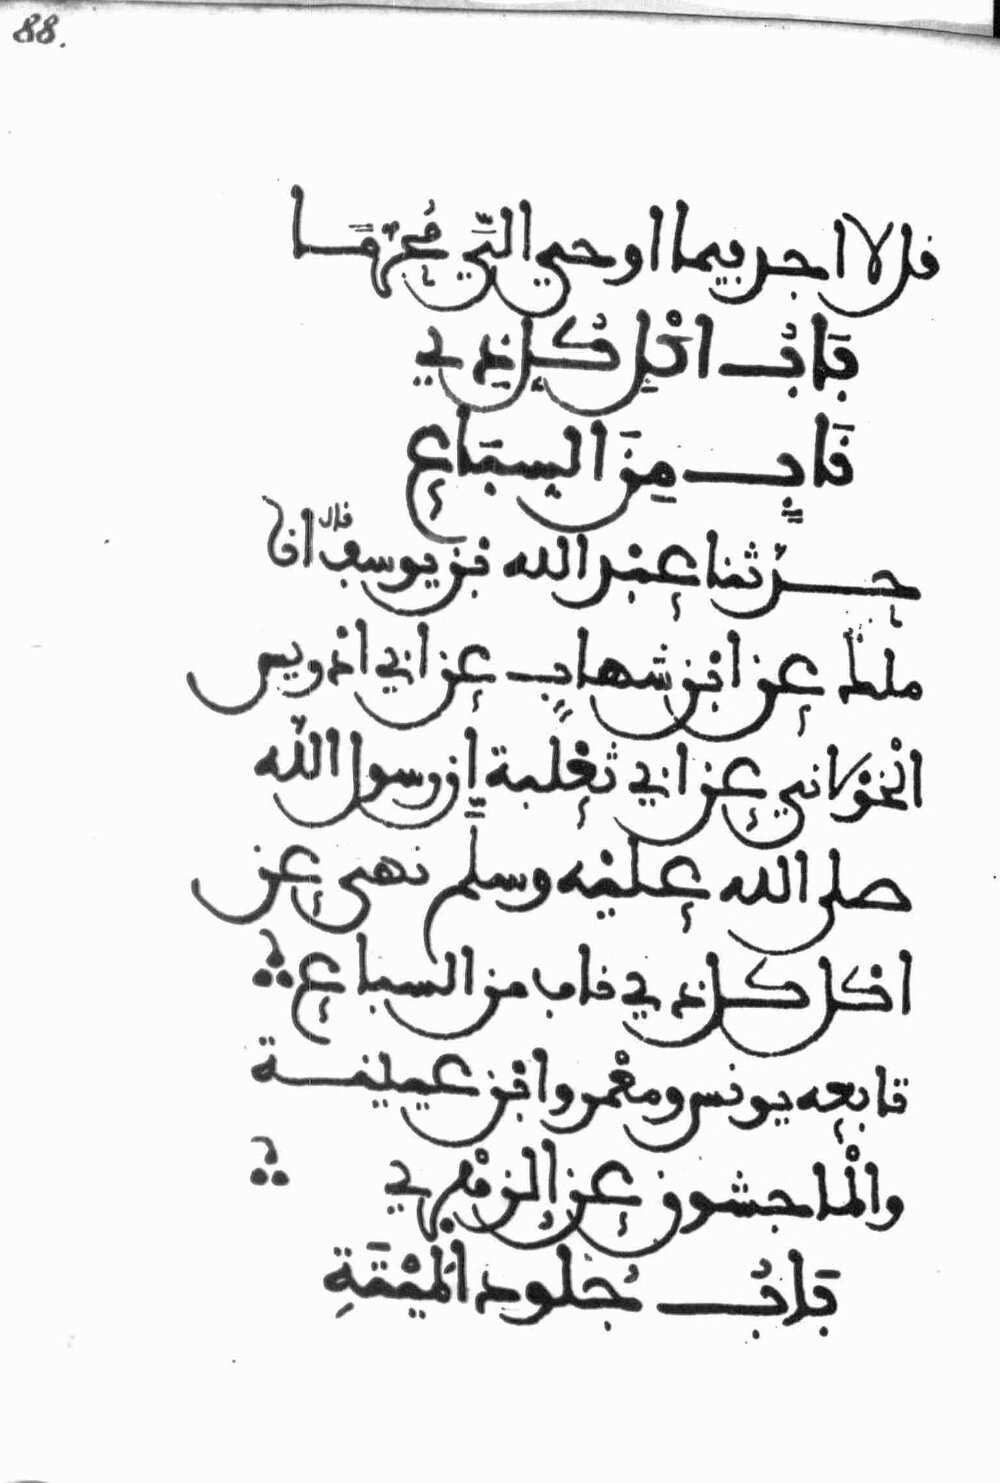 88.
قل لا اجد فيما اوحي الي محرما
باب اكل كل ذي
ناب من السباع
حدثنا عبد الله بن يوسف قال انا
ملك عن ابن شهاب عن ابي ادريس
الخولاني عن ابي ثعلبة ان رسول الله
صلى الله عليه وسلم نهى عن
اكل كل ذي ناب من السباع
تابعه يونس ومعمر وابن عيينة
والماجشون عن الزهري
باب جلود الميتة